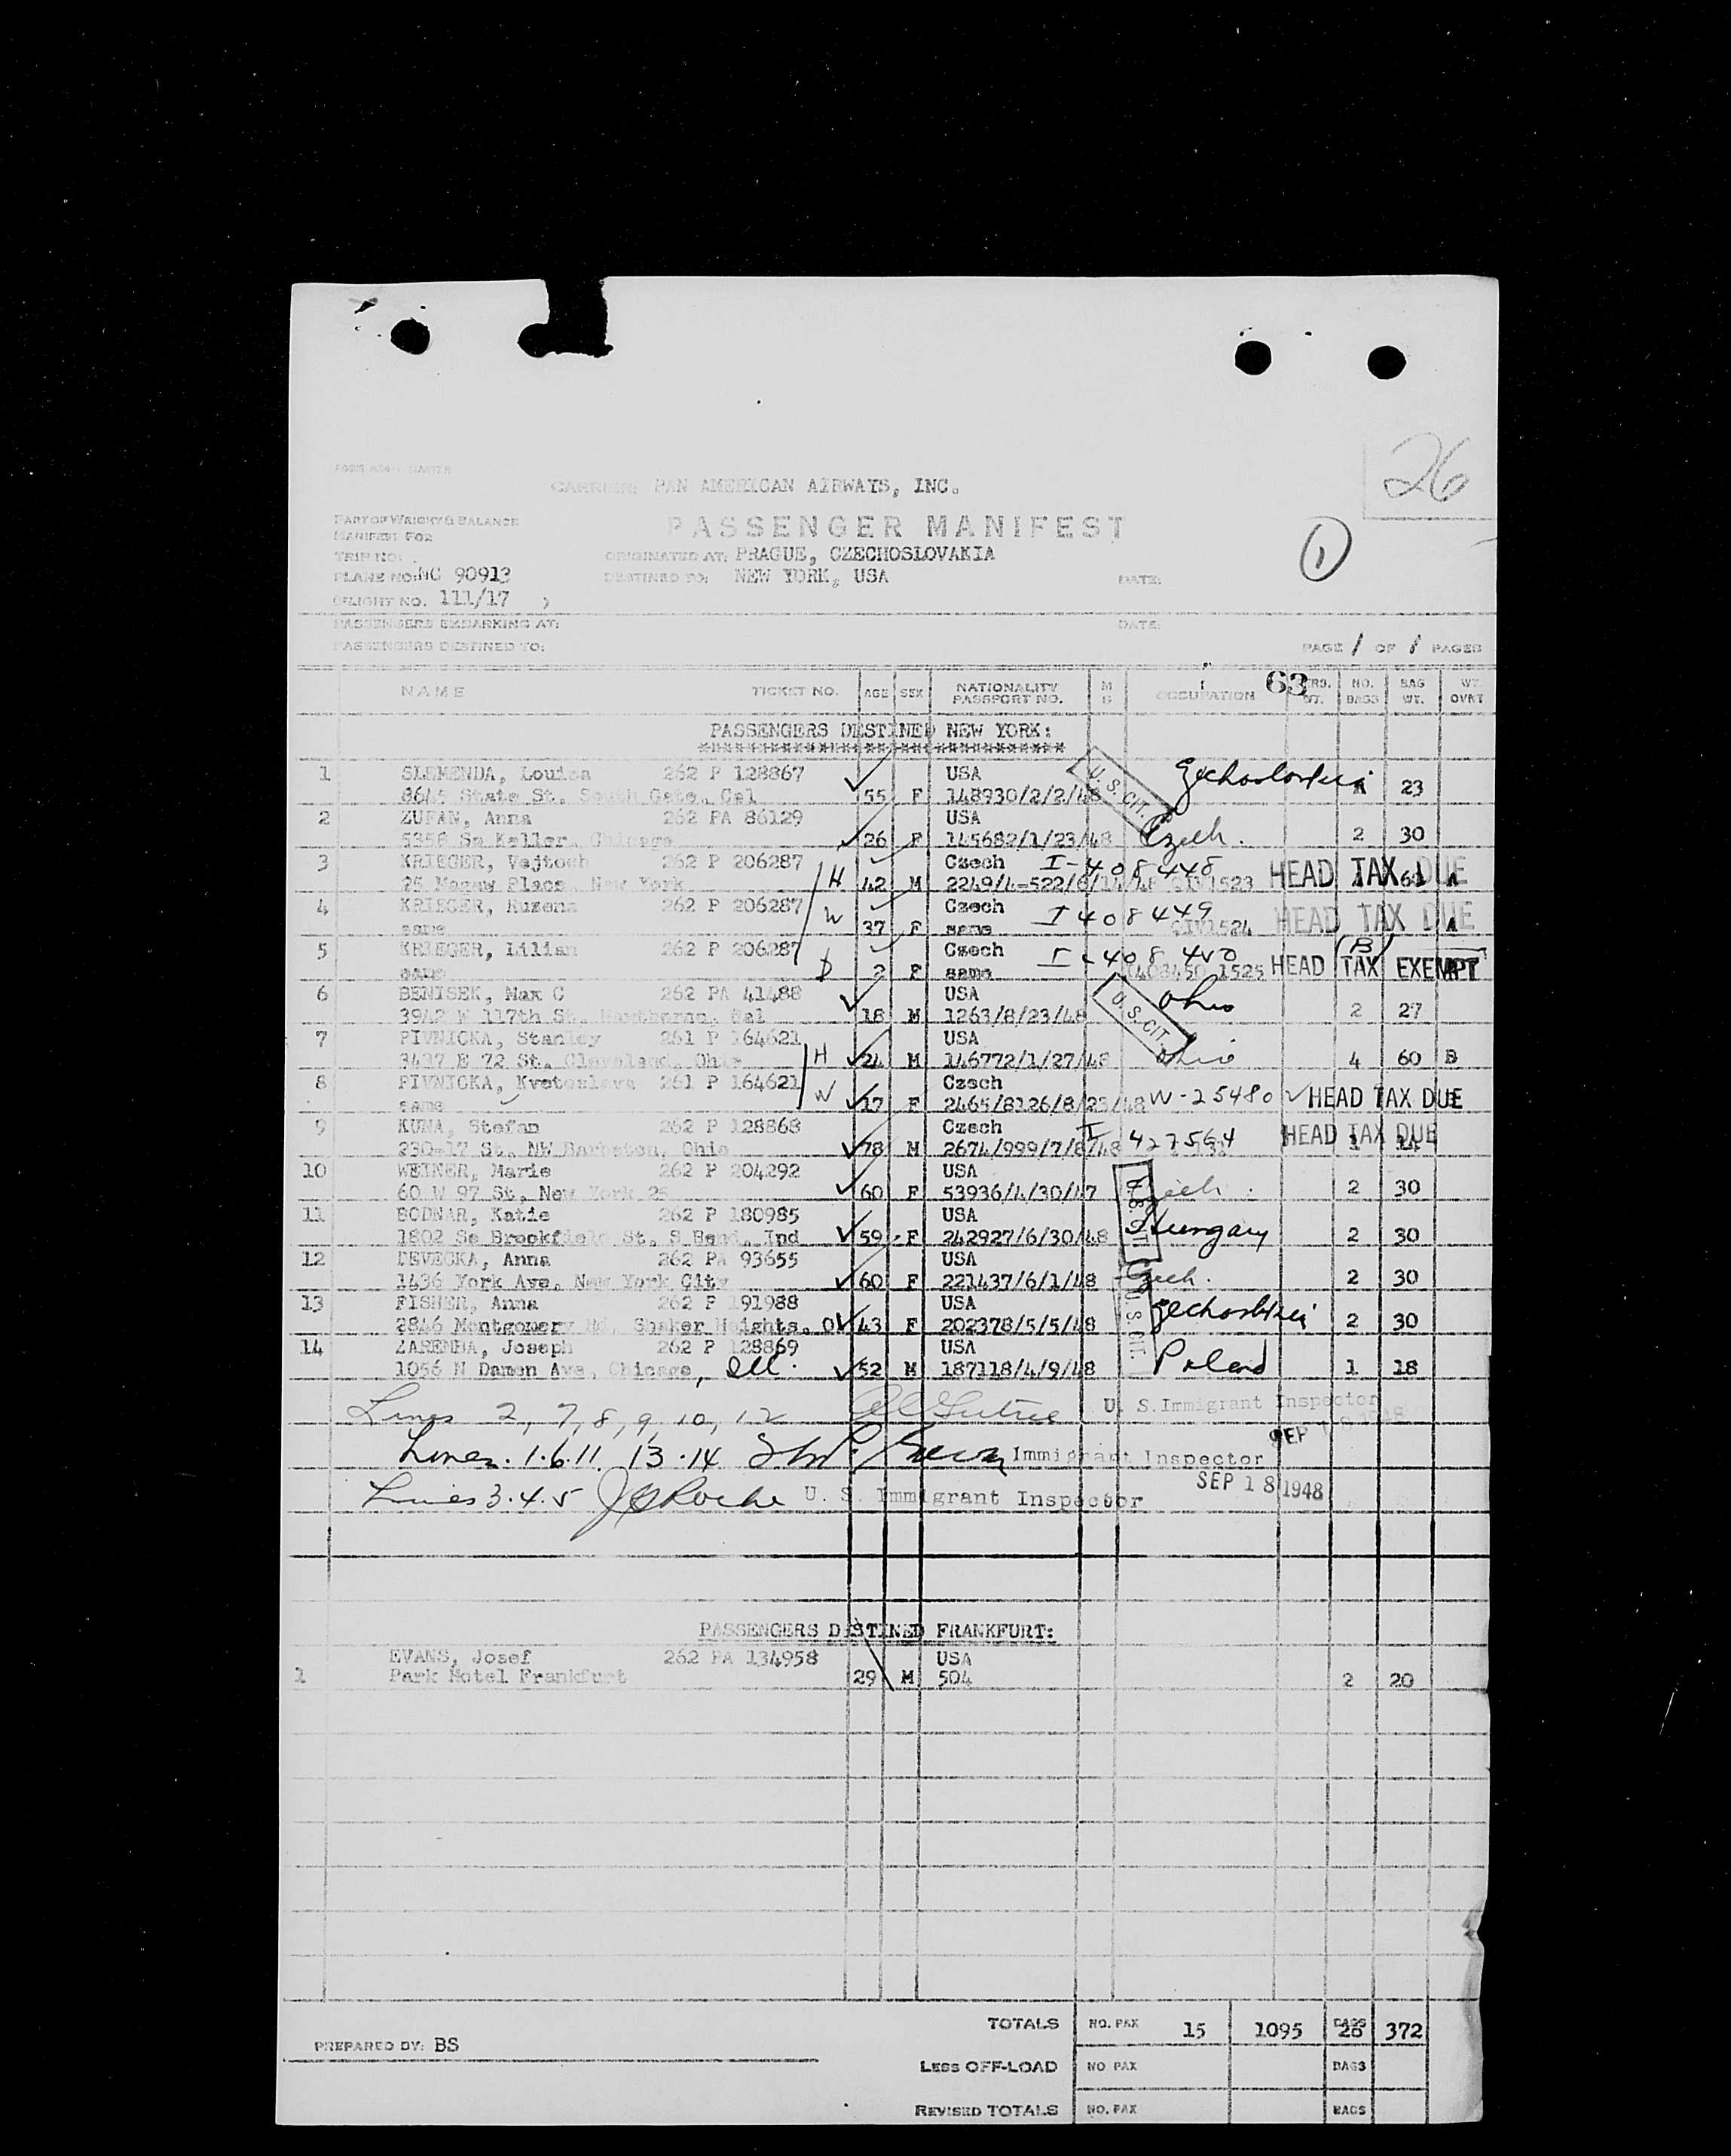 26
CARRIER: PAN AMERICAN AIRWAYS, INC.
PART OF WEIGHT & BALANCE
PASSENGER MANIFEST
MANIFEST FOR
1
TRIP NO:
ORIGINATED AT: PRAGUE, CZECHOSLOVAKIA
PLANE NO: NC 90913
DESTINED TO: NEW YORK, USA
DATE:
(FLIGHT NO. 111/17 )
PASSENGERS EMBARKING AT:
DATE:
PASSENGERS DESTINED TO:
PAGE 1 OF 1 PAGES
63
NAME TICKET NO. AGE SEX NATIONALITY PASSPORT NO. M S OCCUPATION PERS. WT. NO. BAGS BAG WT. WT. OVRT
PASSENGERS DESTINED NEW YORK:
*****************************
1 SLEMENDA, Louisa 262 P 128867 USA U. S. CIT.
8645 State St. South Gate, Cal 55 F 148930/2/2/48 23
2 ZUPAN, Anna 262 PA 86129 USA Czech.
5358 So Keller, Chicago 26 F 145682/1/23/48 2 30
3 KRIEGER, Vojtech 262 P 206287 Czech I-408448 HEAD TAX DUE
25 Magaw Place, New York H 42 M 2249/4-522/6/14/48 1523
4 KRIEGER, Ruzena 262 P 206287 Czech I 408449 HEAD TAX DUE
same W 37 F same 1524 A
5 KRIEGER, Lilian 262 P 206287 Czech I-408450 (B)
same D 2 F same 1408450 1525 HEAD TAX EXEMPT
6 BENISEK, Max C 262 PA 41488 USA Ohio
3942 W 117th St. Hawthorne, Cal 18 M 1263/8/23/48 U. S. CIT. 2 27
7 PIVNICKA, Stanley 261 P 164621 USA
3437 E 72 St. Cleveland, Ohio H 24 M 146772/1/27/48 Ohio 4 60 B
8 PIVNICKA, Kvetoslava 261 P 164621 Czech
same W 17 F 2465/8126/8/23/48 W-25480 HEAD TAX DUE
9 KUNA, Stefan 262 P 128868 Czech I 427564 HEAD TAX DUE
230-17 St. NW Barbston, Ohio 78 M 2674/999/7/8/48 1 14
10 WEINER, Marie 262 P 204292 USA
60 W 97 St, New York 25 60 F 53936/4/30/47 Czech. 2 30
11 BODNAR, Katie 262 P 180985 USA U. S. CIT.
1802 So Brookfield St. S Bend, Ind 59 F 242927/6/30/48 Hungary 2 30
12 DEVECKA, Anna 262 PA 93655 USA
1436 York Ave, New York City 60 F 221437/6/1/48 Czech. 2 30
13 FISHER, Anna 262 P 191988 USA U. S. CIT.
2846 Montgomery Rd, Shaker Heights, O 43 F 202378/5/5/48 2 30
14 ZAREMBA, Joseph 262 P 128869 USA
1056 N Damen Ave, Chicago, Ill. 52 M 187118/4/9/48 Poland 1 18
Lines 2, 7, 8, 9, 10, 12 U. S. Immigrant Inspector
SEP 18 1948
Lines. 1.6.11. 13.14 Immigrant Inspector
SEP 18 1948
Lines 3.4.5 J Roche U. S. Immigrant Inspector
PASSENGERS DESTINED FRANKFURT:
EVANS, Josef 262 PA 134958 USA
1 Park Hotel Frankfurt 29 M 504 2 20
TOTALS NO. PAX 15 1095 BAGS 26 372
PREPARED BY: BS
LESS OFF-LOAD NO PAX BAGS
REVISED TOTALS NO. PAX BAGS